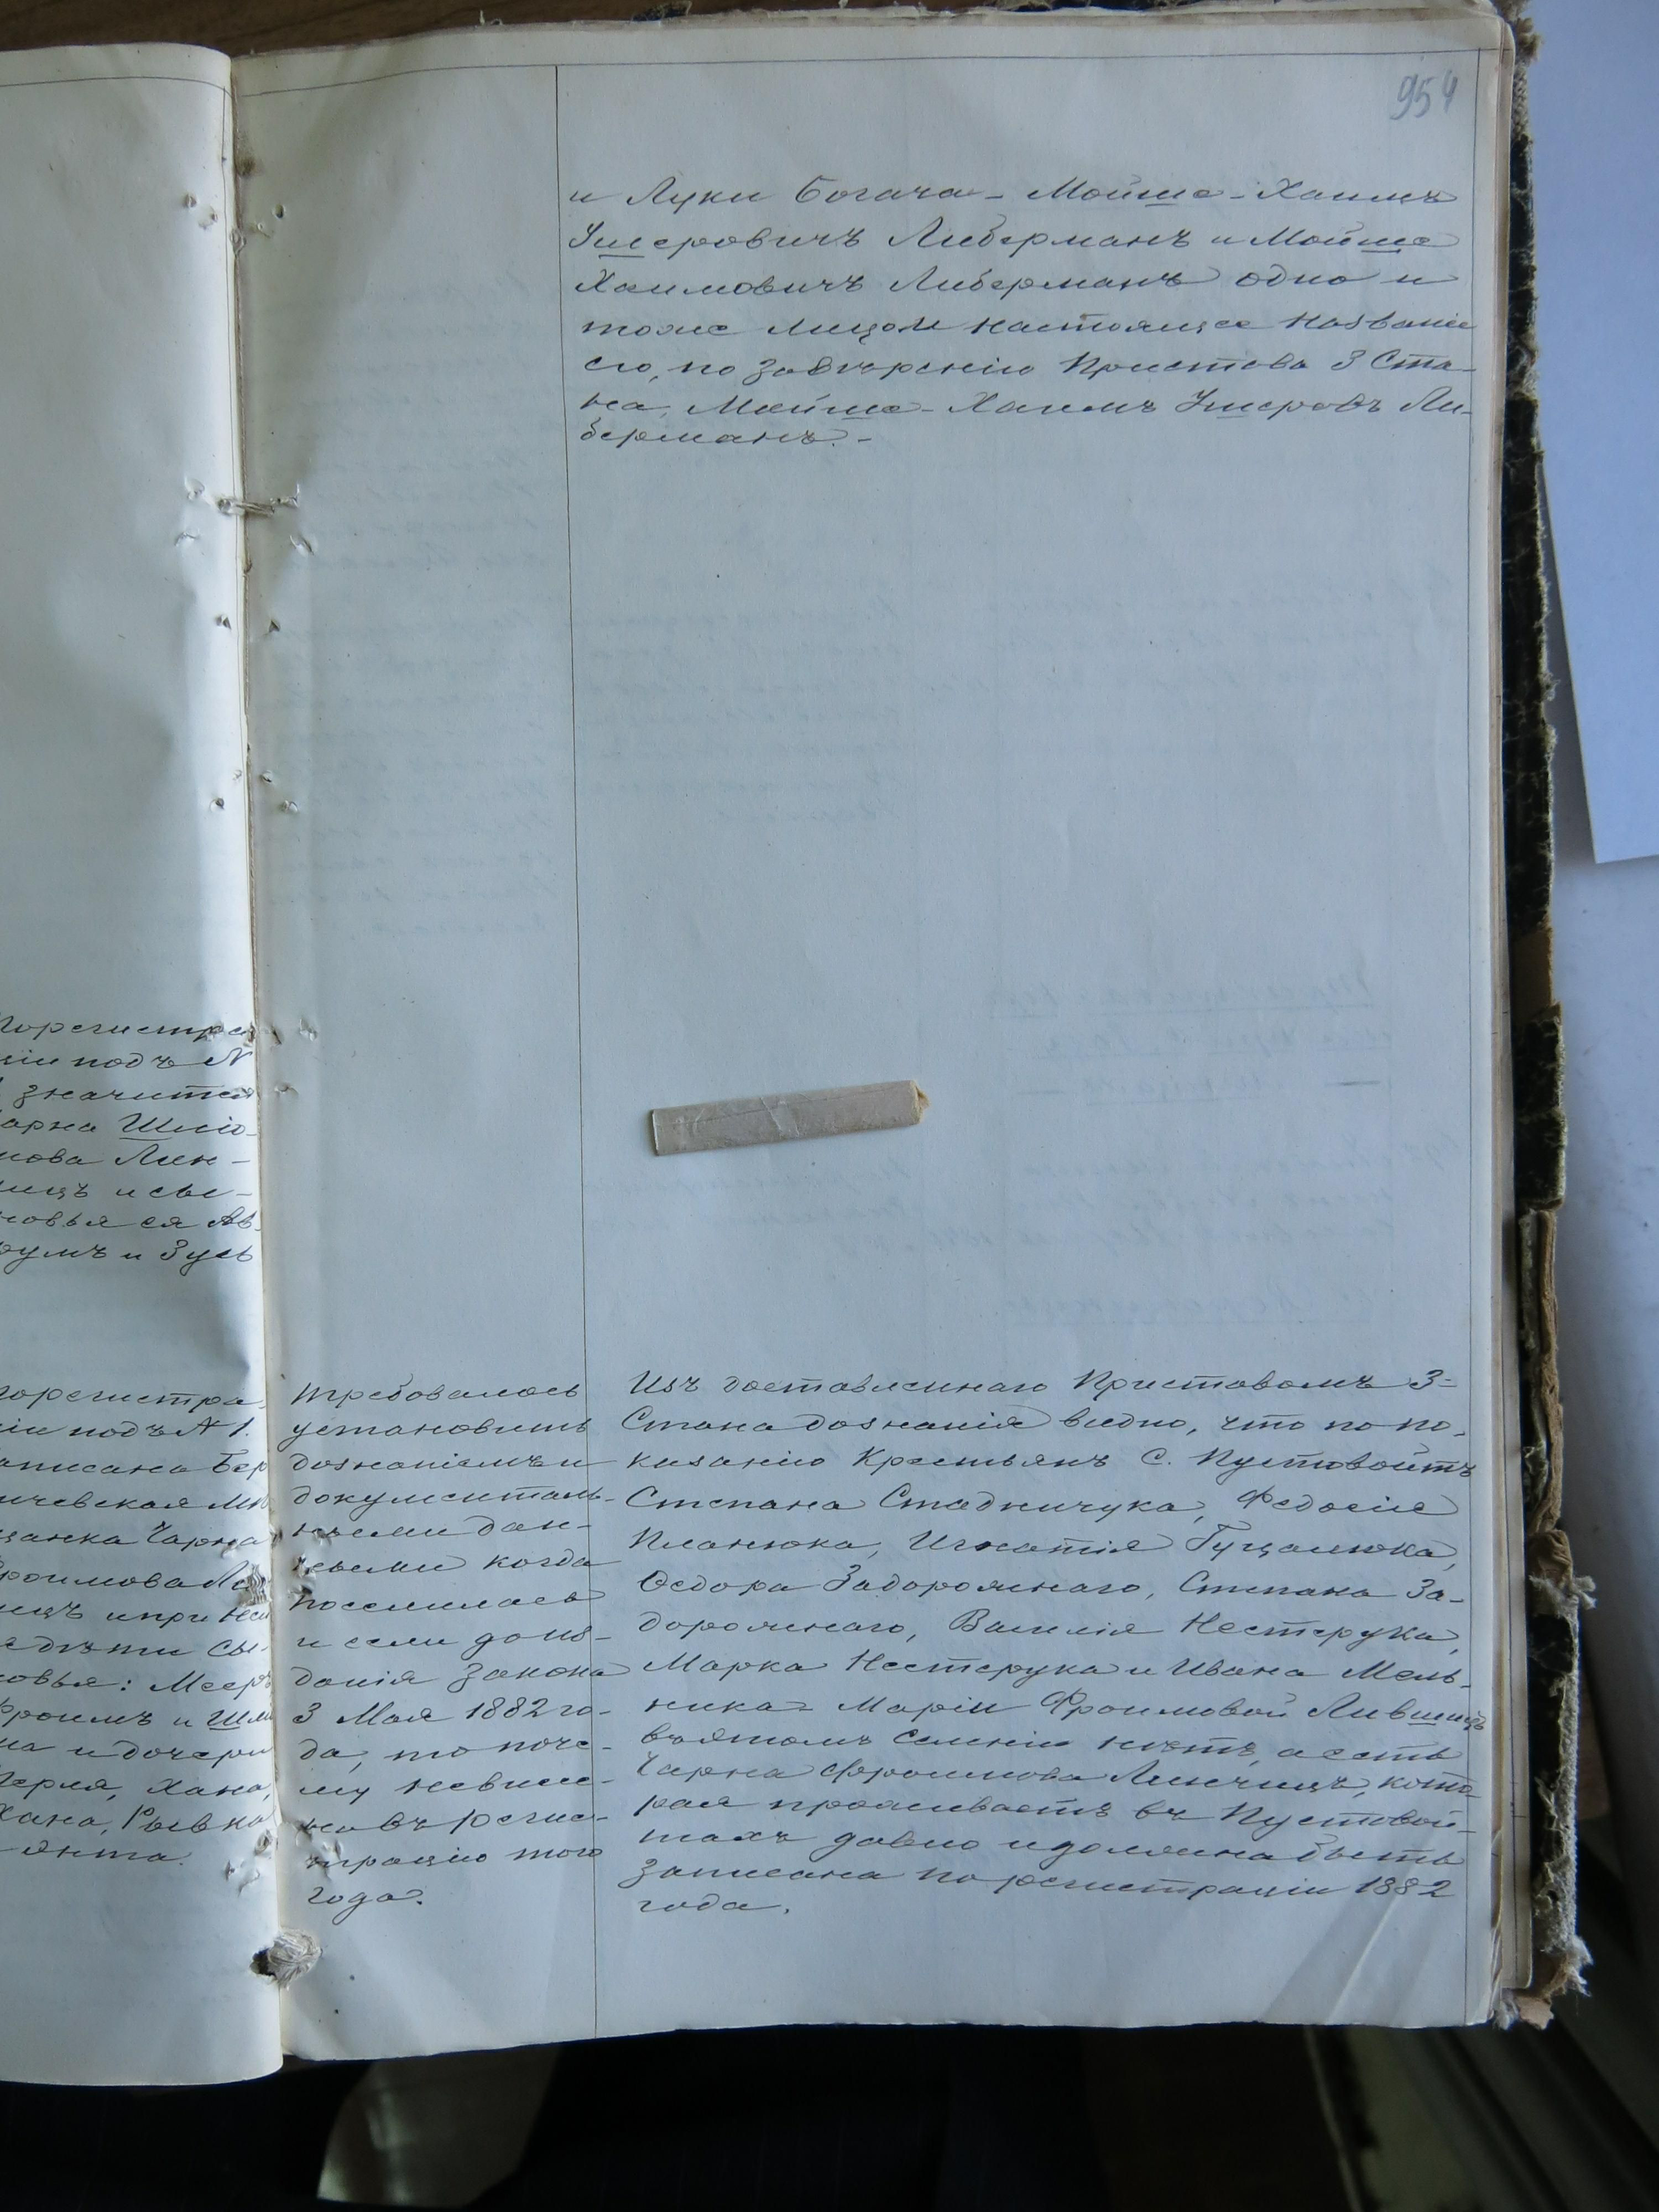 954
и Луки Богача - Мойше-Хаимъ
Ушеровичъ Либерманъ и Мойше
Хаимовичъ Либерманъ одно и
тоже лицо и настоящее названіе
его, по завѣренію Пристава 3 Ста-
на, Мойше-Хаимъ Ушеровъ Ли-
берманъ. -
порегистра
ціи подъ N
значится
арна Шлio-
мова Лин-
ицъ и сы-
новья ея Ав-
румъ и Зусь
порегистра
ціи подъ N 1.
аписана Бер
ичевская мѣ
щанка Чарна
роимова Ли
ицъ и при ней
дѣти сы-
новья: Мееръ
Фроимъ и Шле
ма и дочери
Перля, Хана,
Хана, Рывка
Янта.
Требовалось
установить
дознаніемъ и
документаль-
ными дан-
ными когда
поселилась
и если до из-
данія закона
3 Мая 1882 го-
да, то поче-
му не внесе-
на въ регис-
трацію того
года.
Изъ доставленнаго Приставомъ 3-
Стана дознанія видно, что по по-
казанію Крестьянъ С. Пустовойтъ
Степана Стадничука, Федосія
Планюка, Игнатія Гуцалюка,
Ѳедора Задорожнаго, Степана За-
дорожнаго, Василія Нестерука,
Марка Нестерука и Ивана Мель-
ника - Маріи Фроимовой Лившицъ
въ этомъ селеніи нѣтъ, а есть
Чарна Фроимова Линчицъ, кото-
рая проживаетъ въ Пустовой-
тахъ давно и должна быть
записана по регистраціи 1882
года.